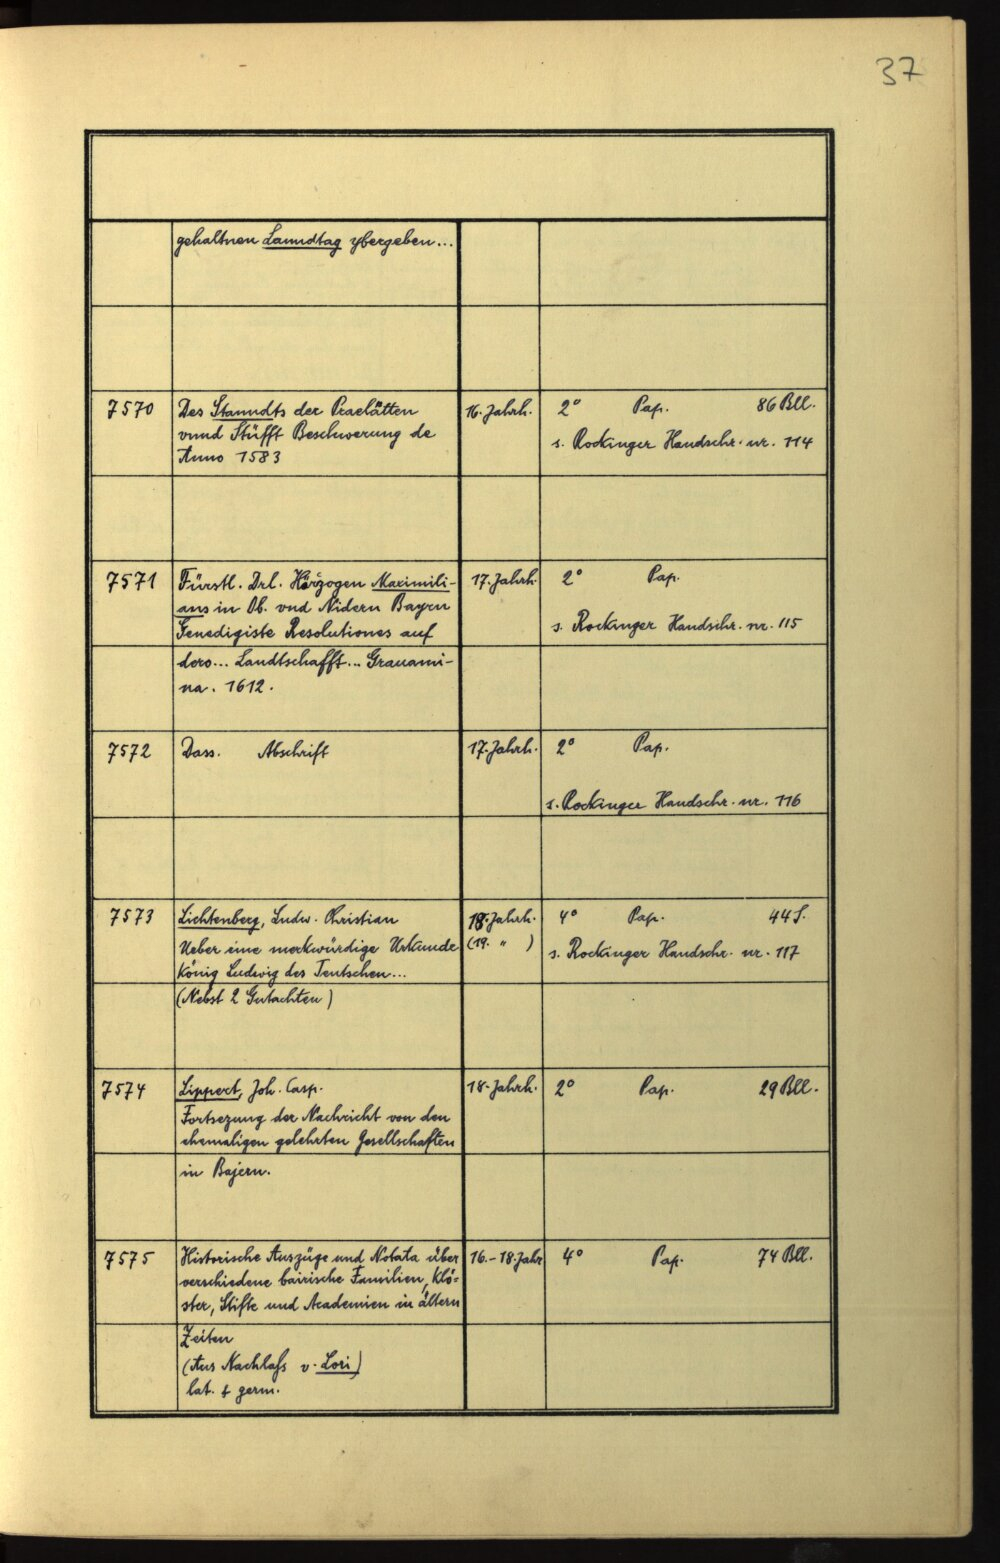 37
gehaltnen Lanndtag ybergeben...
7570 Des Stanndts der Praelätten 16. Jahrh. 2° Pap. 86 Bll.
vnnd Stüfft Beschwerung de s. Rockinger Handschr. nr. 114
Anno 1583
7571 Fürstl. Drl. Herzogen Maximili- 17. Jahrh. 2° Pap.
ans in Ob. vnd Nidern Bayrn s. Rockinger Handschr. nr. 115
Genedigiste Resolutiones auf
dero... Landtschafft... Grauami-
na. 1612.
7572 Dass. Abschrift 17. Jahrh. 2° Pap.
s. Rockinger Handschr. nr. 116
7573 Lichtenberg, Ludw. Christian 18. Jahrh. 4° Pap. 44 S.
Ueber eine merkwürdige Urkunde (19. " ) s. Rockinger Handschr. nr. 117
König Ludwig des Teutschen...
(Nebst 2 Gutachten)
7574 Lippert, Joh. Casp. 18. Jahrh. 2° Pap. 29 Bll.
Fortsezung der Nachricht von den
ehemaligen gelehrten Gesellschaften
in Bajern.
7575 Historische Auszüge und Notata über 16.-18. Jahr 4° Pap. 74 Bll.
verschiedene bairische Familien, Klö-
ster, Stifte und Academien in ältern
Zeiten
(Aus Nachlaß v. Lori)
lat. & germ.